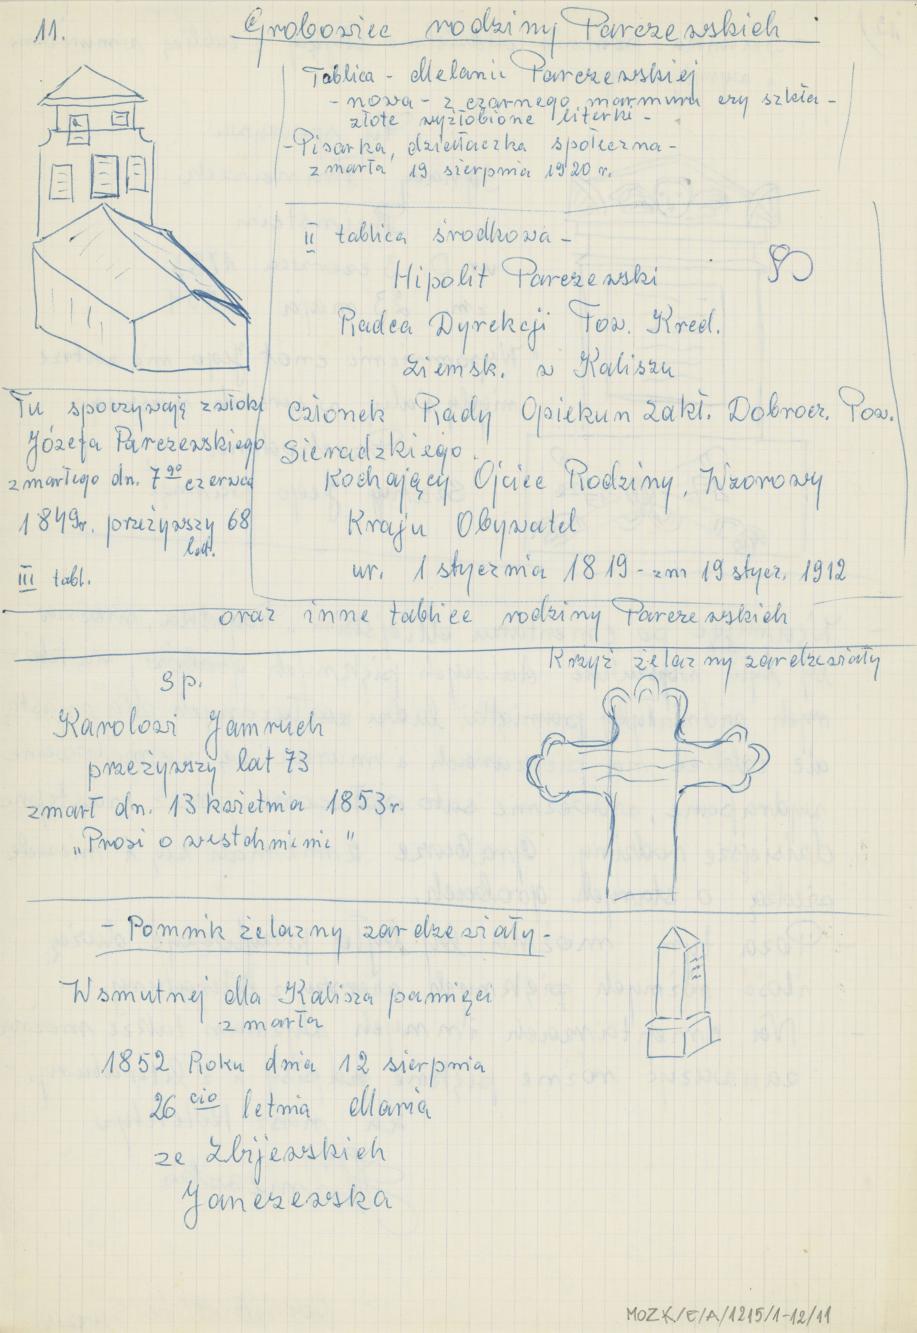 11.
Grobowiec rodziny Parczewskich
Tablica - Melanii Parczewskiej
- nowa - z czarnego marmuru czy szkła -
złote wyżłobione literki -
- Pisarka, działaczka społeczna -
zmarła 19 sierpnia 1920 r.
II tablica środkowa -
Hipolit Parczewski
Radca Dyrekcji Tow. Kred.
Ziemsk. w Kaliszu
Członek Rady Opiekun Zakł. Dobrocz. Pow.
Sieradzkiego.
Kochający Ojciec Rodziny, Wzorowy
Kraju Obywatel
ur. 1 stycznia 1819 - zm 19 stycz. 1912
Tu spoczywają zwłoki
Józefa Parczewskiego
zmarłego dn. 7go czerwca
1849r. przeżywszy 68
lat.
III tabl.
oraz inne tablice rodziny Parczewskich
Krzyż żelazny zardzewiały
Sp.
Karolowi Jamruch
przeżywszy lat 73
zmarł dn. 13 kwietnia 1853r.
"Prosi o westchnienie"
- Pomnik żelazny zardzewiały -
W smutnej dla Kalisza pamięci
zmarła
1852 Roku dnia 12 sierpnia
26 cio letnia Maria
ze Zbijewskich
Janczewska
MOZK/E/A/1215/1-12/11